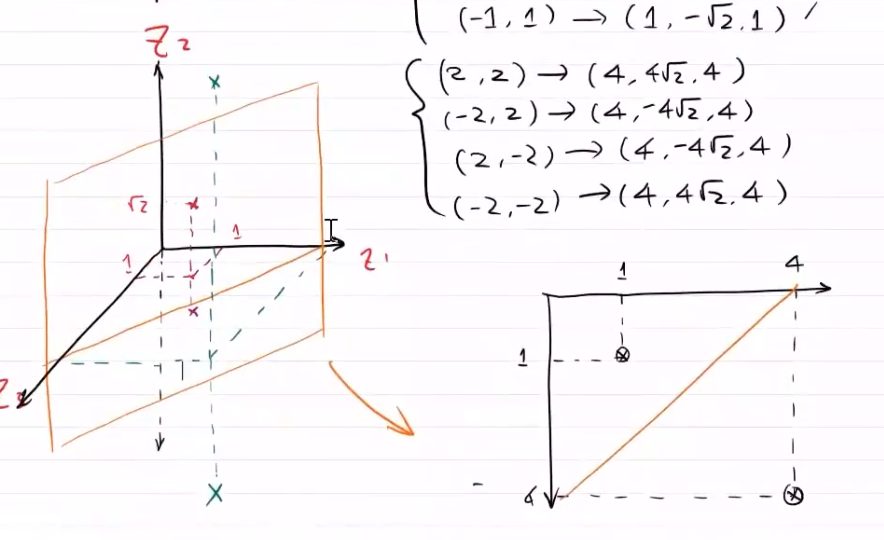 (-1, 1) → (1, -√2, 1)
(2, 2) → (4, 4√2, 4)
(-2, 2) → (4, -4√2, 4)
(2, -2) → (4, -4√2, 4)
(-2, -2) → (4, 4√2, 4)
Z2
x
√2
x
1
1
Z1
x
x
1
4
1
4